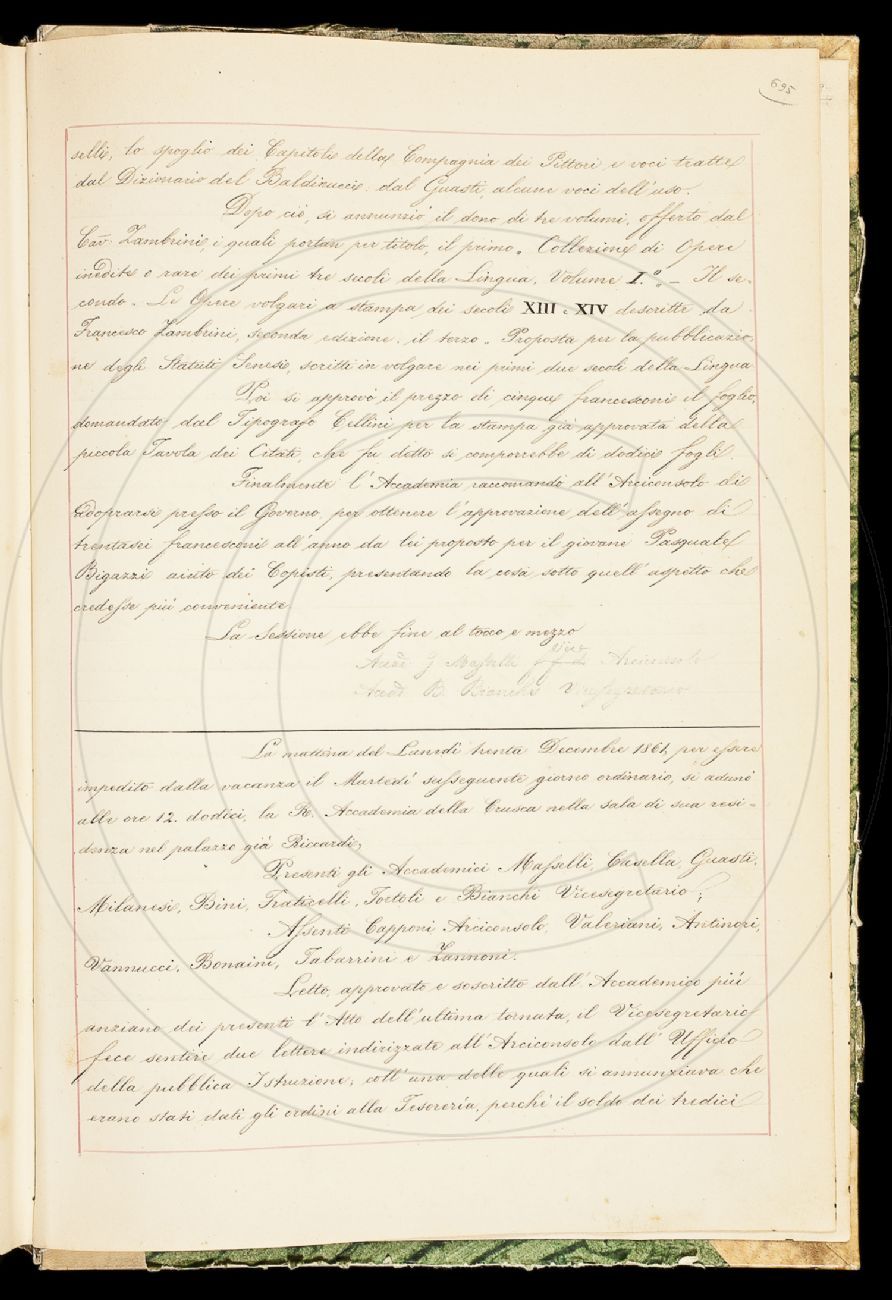 695
selli, lo spoglio dei Capitoli della Compagnia dei Pittori, e voci tratte
dal Dizionario del Baldinucci: dal Guasti, alcune voci dell'uso.
Dopo ciò, si annunziò il dono di tre volumi, offerto dal
Cav. Zambrini, i quali portan per titolo, il primo „ Collezione di Opere
inedite o rare dei primi tre secoli della Lingua, Volume I.º „ — Il se-
condo „ Le Opere volgari a stampa dei secoli XIII e XIV descritte da
Francesco Zambrini, seconda edizione, il terzo „ Proposta per la pubblicazio-
ne degli Statuti Senesi, scritti in volgare nei primi due secoli della Lingua
Poi si approvò il prezzo di cinque francesconi il foglio,
domandato dal Tipografo Cellini per la stampa già approvata della
piccola Tavola dei Citati, che fu detto si comporrebbe di dodici fogli.
Finalmente l'Accademia raccomandò all'Arciconsolo di
adoprarsi presso il Governo per ottenere l'approvazione dell'assegno di
trentasei francesconi all'anno da lei proposto per il giovane Pasquale
Bigazzi aiuto dei Copisti, presentando la cosa sotto quell'aspetto che
credesse più conveniente.
La Sessione ebbe fine al tocco e mezzo
Accad. Masselli vice Arciconsolo
Accad. B. Bianchi Vicesegretario
La mattina del Lunedì trenta Decembre 1861, per essere
impedito dalla vacanza il Martedì susseguente giorno ordinario, si adunò
alle ore 12. dodici, la R. Accademia della Crusca nella sala di sua resi-
denza nel palazzo già Riccardi;
Presenti gli Accademici Masselli, Casella, Guasti,
Milanesi, Bini, Fraticelli, Tortoli e Bianchi Vicesegretario;
Assenti Capponi Arciconsolo, Valeriani, Antinori,
Vannucci, Bonaini, Tabarrini e Zannoni.
Letto, approvato e soscritto dall'Accademico più
anziano dei presenti l'Atto dell'ultima tornata, il Vicesegretario
fece sentire due lettere indirizzate all'Arciconsolo dall'Uffizio
della pubblica Istruzione; coll'una delle quali si annunziava che
erano stati dati gli ordini alla Tesoreria, perché il soldo dei tredici